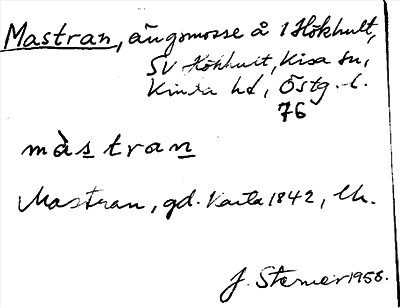 Mastran, ängsmosse å 1 Hökhult,
SV Hökhult, Kisa sn,
Kinda hd, Östg. l.
76
màstran
Mastran, gd. Karta 1842, Lk.
J. Sterner 1958.